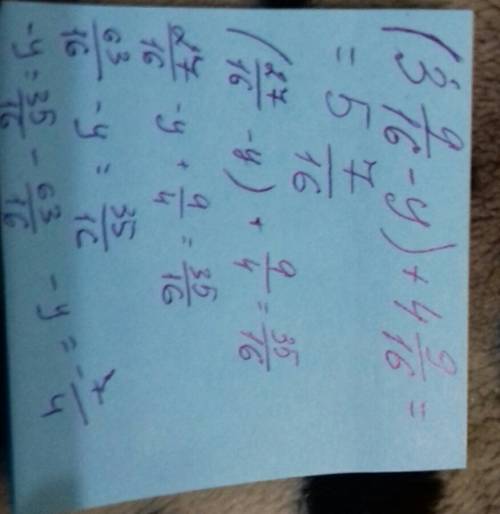 (3 9/16 - y) + 4 9/16 =
= 5 7/16
(27/16 - y) + 9/4 = 35/16
27/16 - y + 9/4 = 35/16
63/16 - y = 35/16
-y = 35/16 - 63/16   -y = -7/4